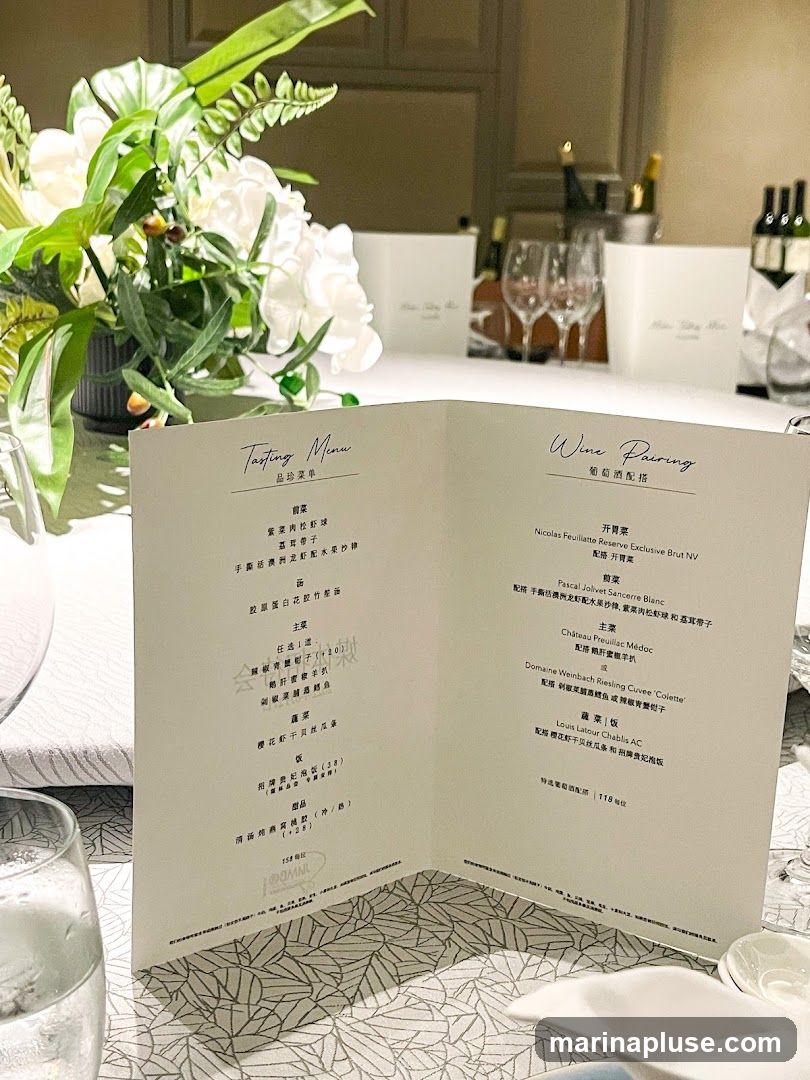 Tasting Menu
品珍菜单
前菜
紫菜肉松虾球
荔茸带子
手撕活澳洲龙虾配水果沙律
汤
胶原蛋白花胶竹笙汤
主菜
任选1道:
辣椒青蟹钳子(+20)
鹅肝蜜椒羊扒
剁椒菜脯蒸鳕鱼
蔬菜
樱花虾干贝丝瓜条
饭
招牌贵妃泡饭(38)
甜品
清汤炖燕窝桃胶(冷/热)
(+28)
158 每位
Wine Pairing
葡萄酒配搭
开胃菜
Nicolas Feuiliatte Reserve Exclusive Brut NV
配搭 开胃菜
前菜
Pascal Jolivet Sancerre Blanc
配搭 手撕活澳洲龙虾配水果沙律, 紫菜肉松虾球 和 荔茸带子
主菜
Château Preuillac Médoc
配搭 鹅肝蜜椒羊扒
或
Domaine Weinbach Riesling Cuvee 'Colette'
配搭 剁椒菜脯蒸鳕鱼 或 辣椒青蟹钳子
蔬菜|饭
Louis Latour Chablis AC
配搭 樱花虾干贝丝瓜条 和 招牌贵妃泡饭
特选葡萄酒配搭 | 118 每位
marinapluse.com